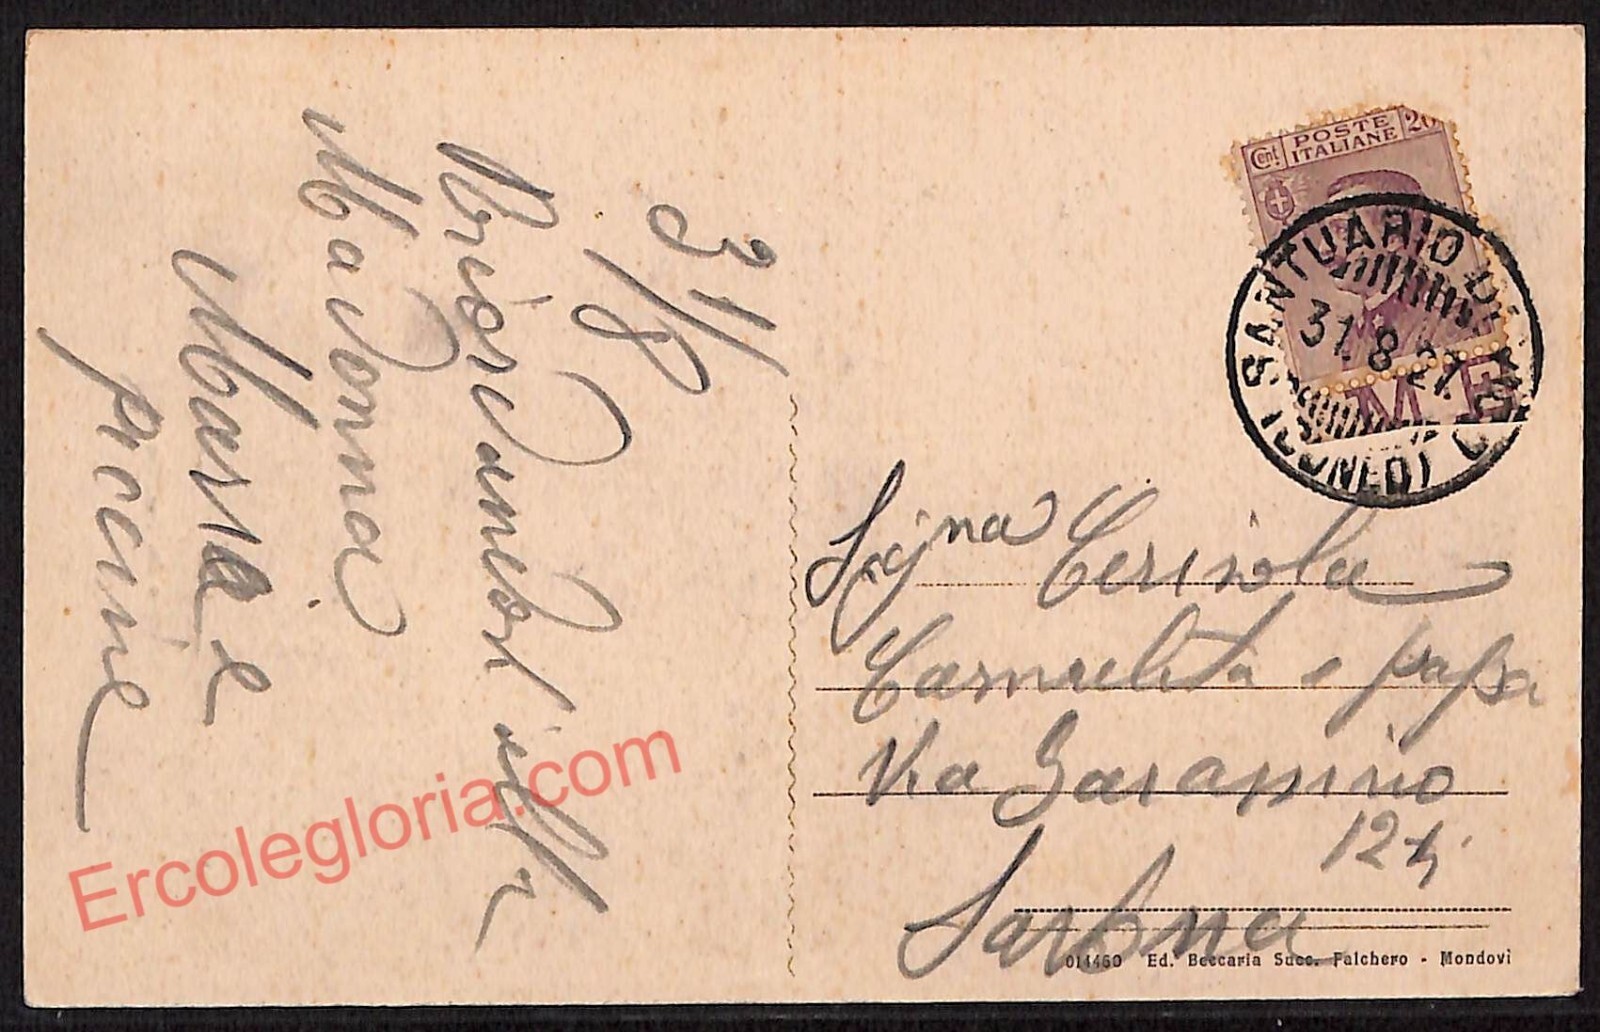 31/8
Ricordandovi alla
Madonna
Massa e
piccine
Cent. POSTE ITALIANE 20
SANTUARIO DI
31.8.27.
Sig.na Cerisola
Carmelita e papà
Via Garassino
12
Savona
014460 Ed. Beccaria Succ. Falchero - Mondovì
Ercolegloria.com